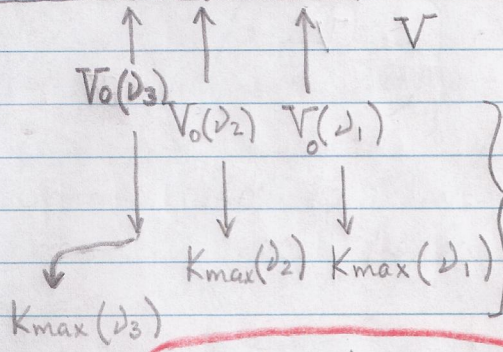 V
V₀(ν₃) V₀(ν₂) V₀(ν₁)
Kmax(ν₂) Kmax(ν₁)
Kmax(ν₃)